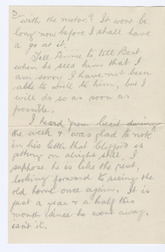 with the motor? It wont be
long now before I shall have
a go at it.
Tell Annie to tell Bert
when she sees him that I
am sorry I have not been
able to write to him, but I
will do so as soon as
possible.
I heard from best during
the week & was glad to note
in his letter that he is
getting on alright still. I
suppose he is like the rest,
looking forward to seeing the
old home once again. It is
just a year & a half this
month since he went away,
isn't it.